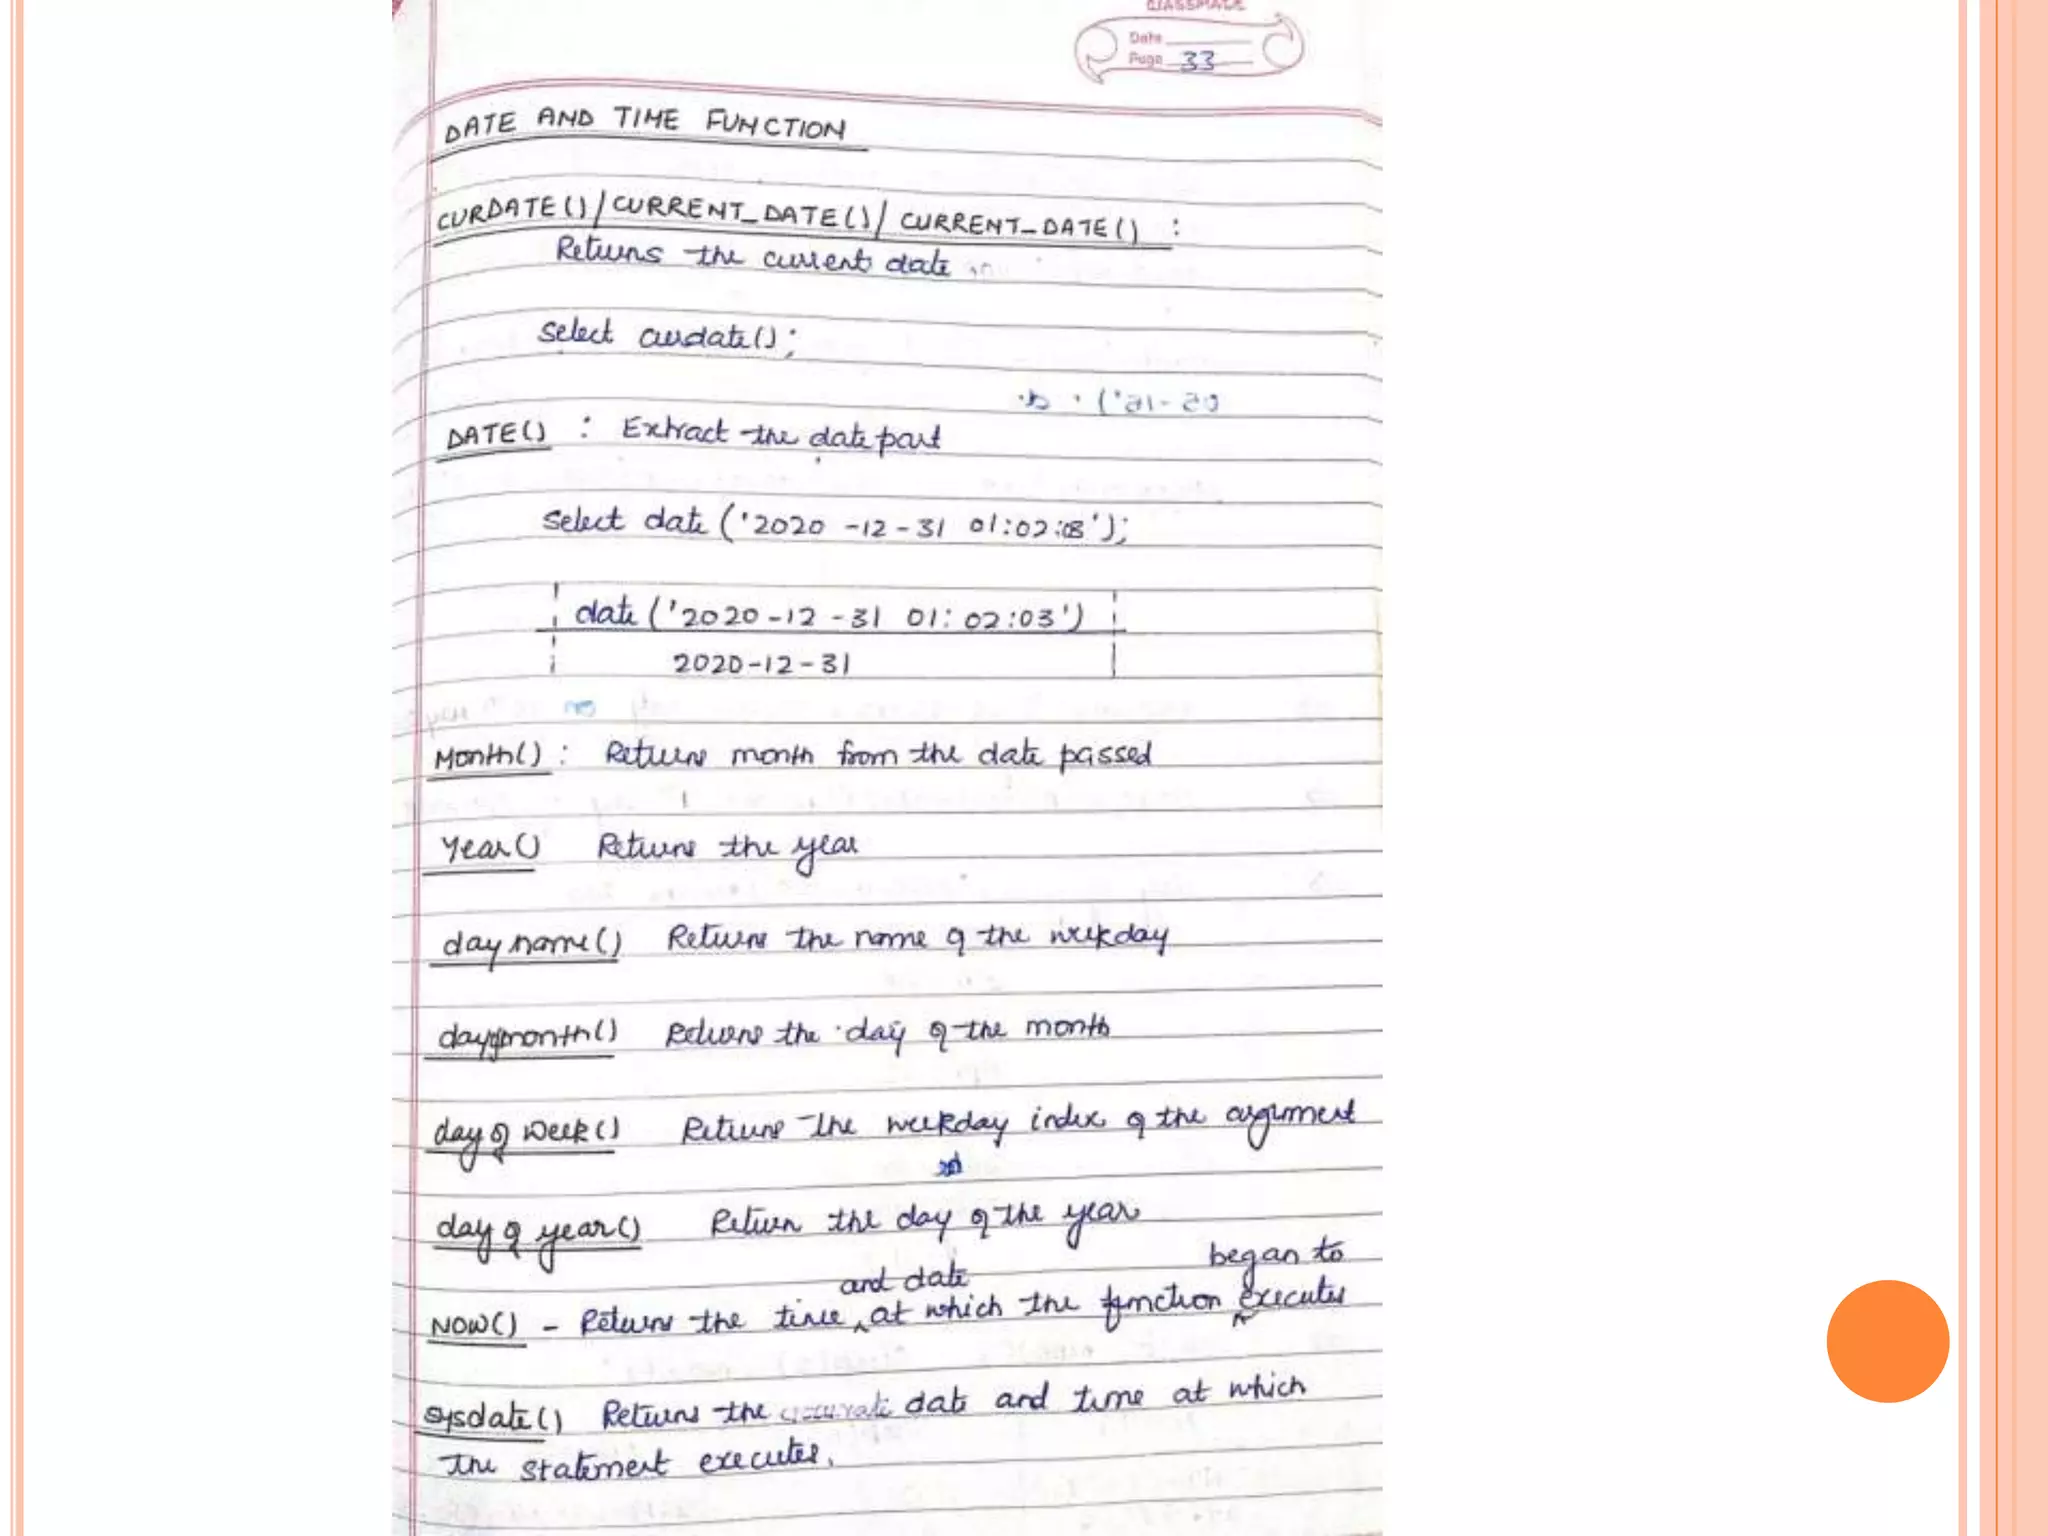 classmate
Date
Page 33
DATE AND TIME FUNCTION
CURDATE()/CURRENT_DATE()/ CURRENT_DATE() :
Returns the current date
select curdate();
DATE() : Extract the date part
select date ('2020 -12-31 01:02:03');
date ('2020-12-31 01:02:03')
2020-12-31
Month() : Returns month from the date passed
Year() Returns the year
day name() Returns the name of the weekday
dayofmonth() Returns the day of the month
day of week() Returns the weekday index of the argument
day of year() Return the day of the year
and date began to
NOW() - Returns the time at which the function executes
sysdate() Returns the accurate date and time at which
the statement executes.